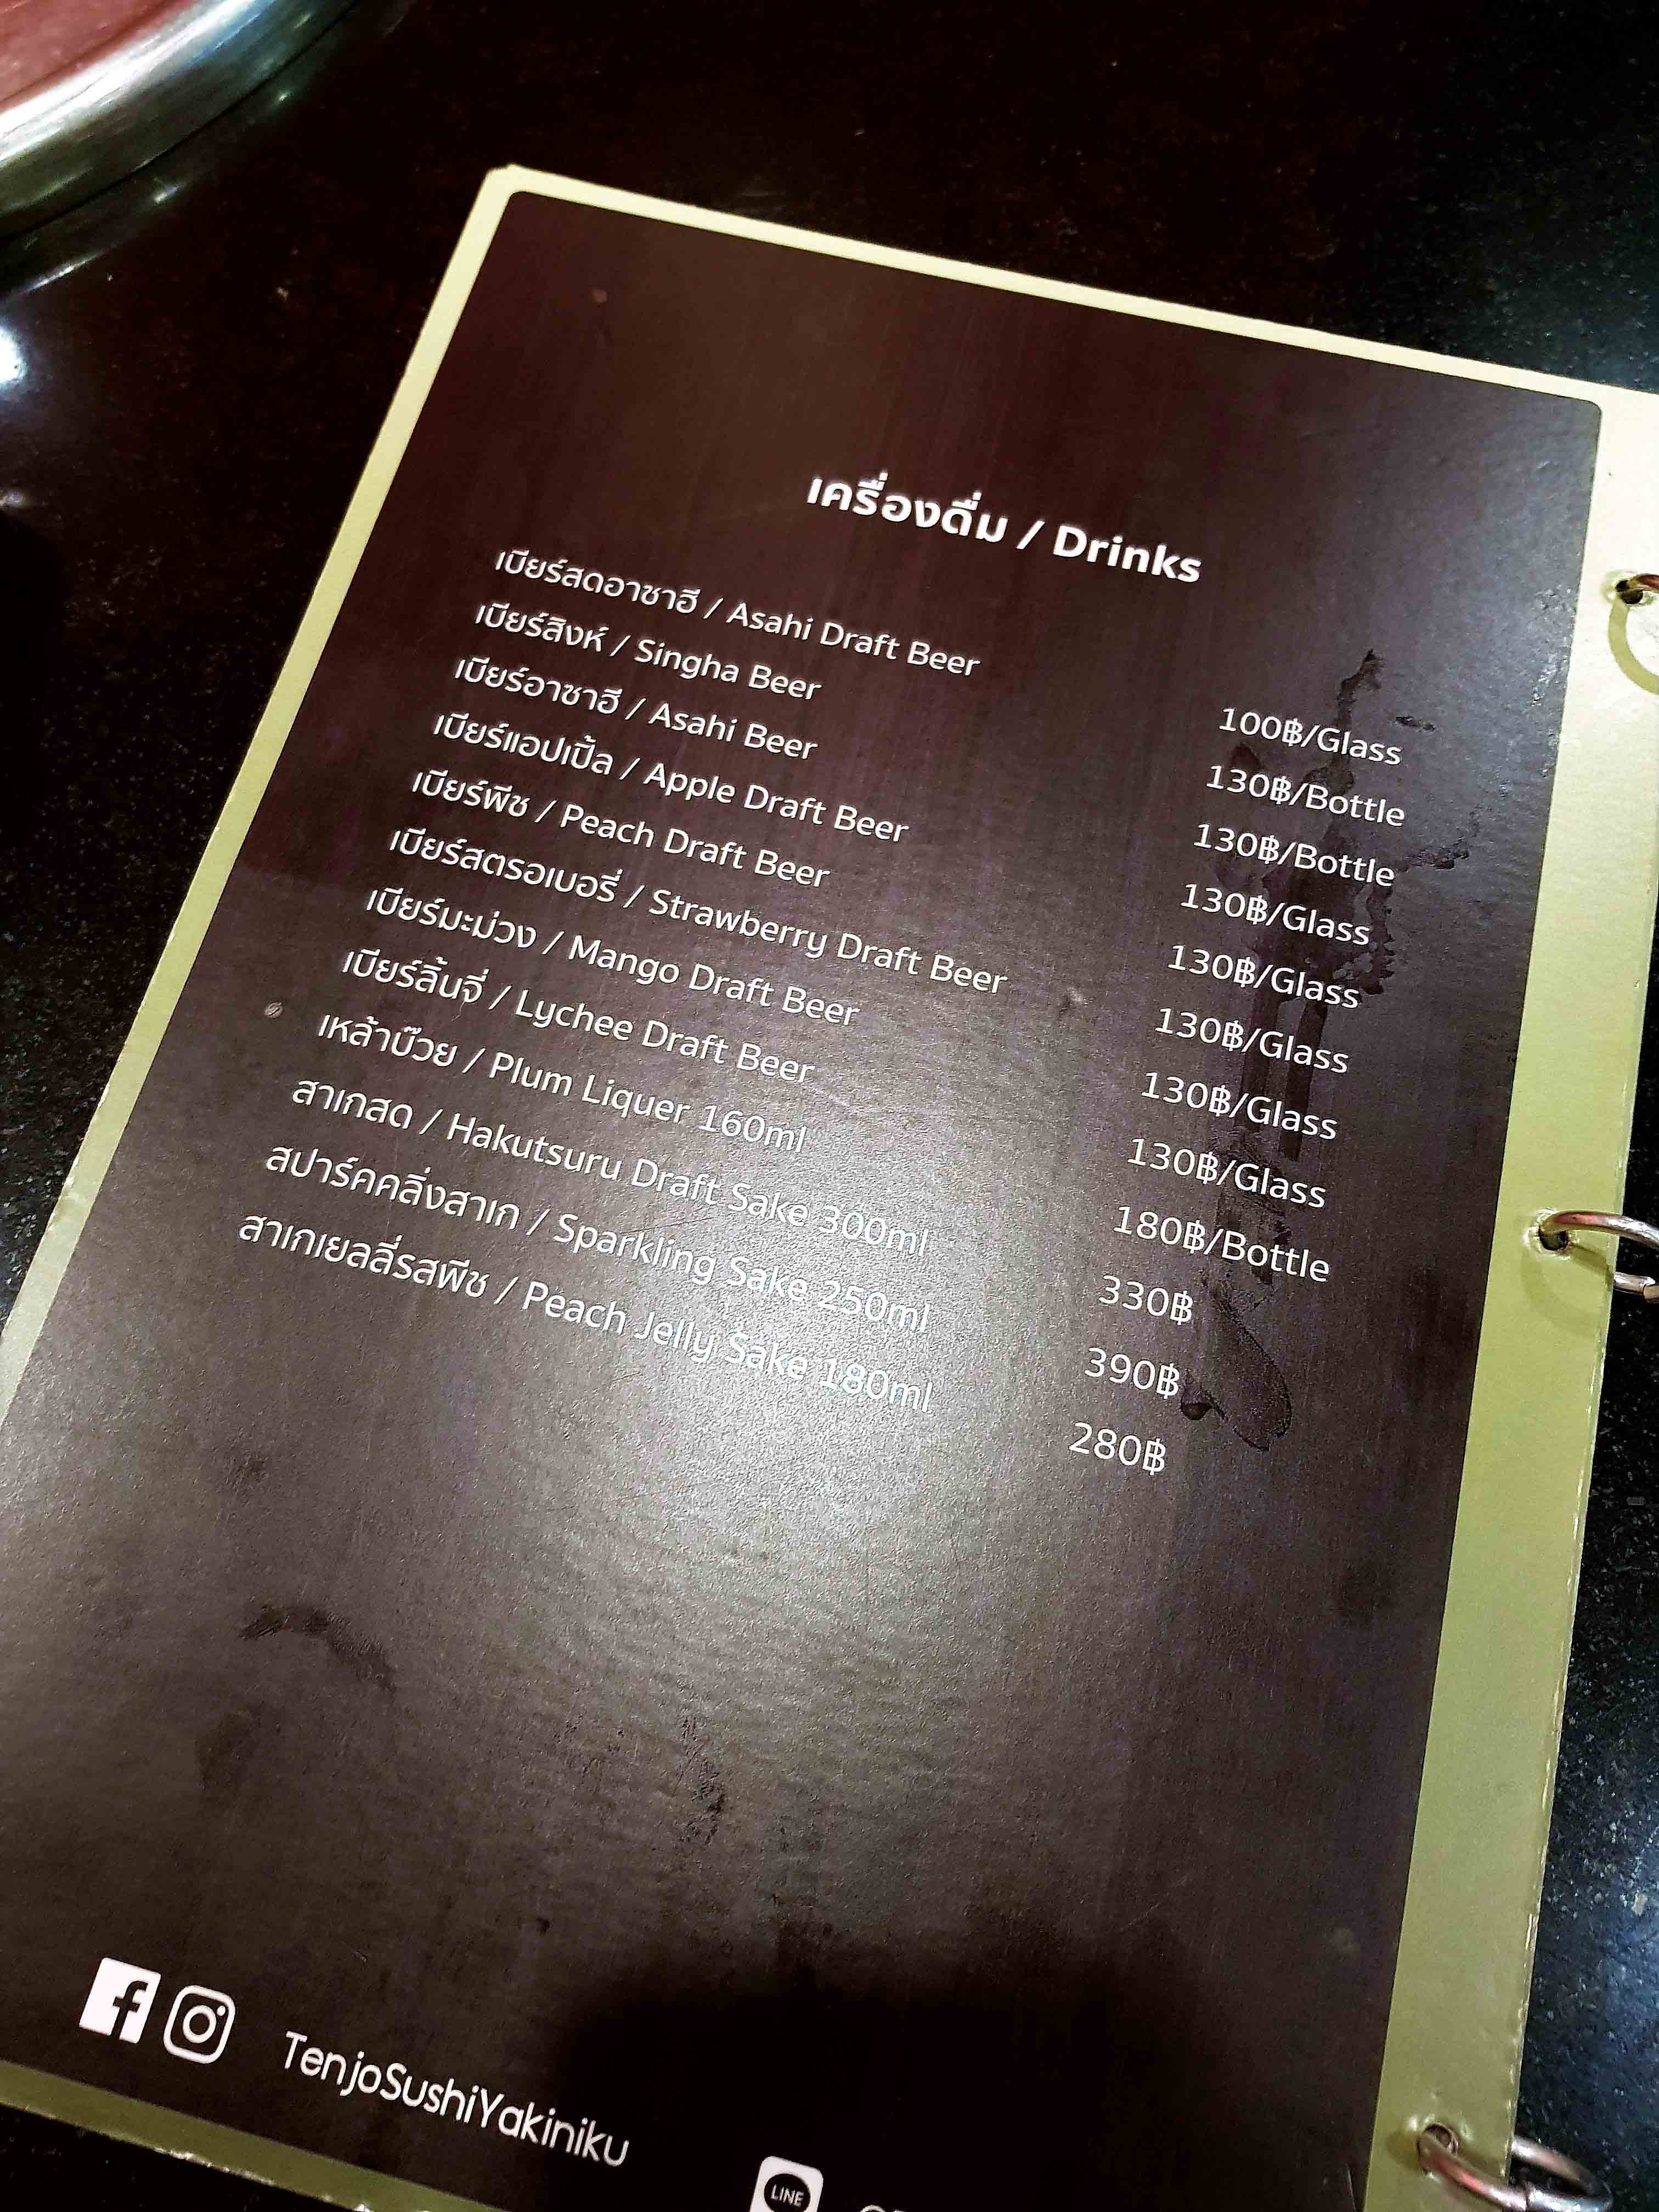 เครื่องดื่ม / Drinks
เบียร์สดอาซาฮี / Asahi Draft Beer 100฿/Glass
เบียร์สิงห์ / Singha Beer 130฿/Bottle
เบียร์อาซาฮี / Asahi Beer 130฿/Bottle
เบียร์แอปเปิ้ล / Apple Draft Beer 130฿/Glass
เบียร์พีช / Peach Draft Beer 130฿/Glass
เบียร์สตรอเบอรี่ / Strawberry Draft Beer 130฿/Glass
เบียร์มะม่วง / Mango Draft Beer 130฿/Glass
เบียร์ลิ้นจี่ / Lychee Draft Beer 130฿/Glass
เหล้าบ๊วย / Plum Liquer 160ml 180฿/Bottle
สาเกสด / Hakutsuru Draft Sake 300ml 330฿
สปาร์คคลิ่งสาเก / Sparkling Sake 250ml 390฿
สาเกเยลลี่รสพีช / Peach Jelly Sake 180ml 280฿
TenjoSushiYakiniku
LINE